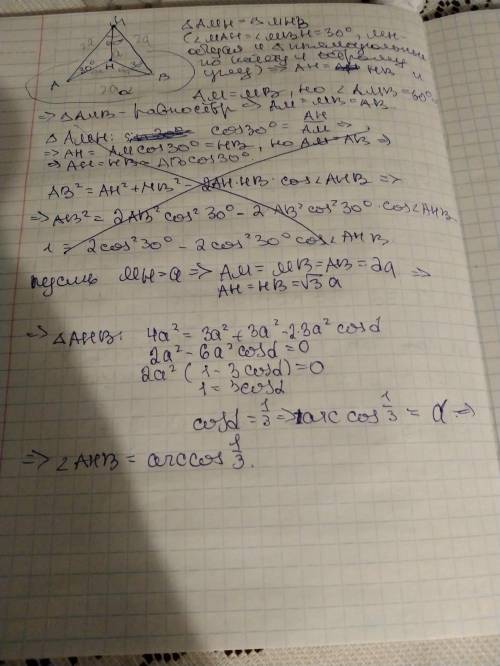 M
2a
2a
30°
H
A
B
2a
α
△AMH = △MHB
(∠MAH = ∠MBH = 30°, MH
общая и △ прямоугольные
по катету и острому
углу) => AH = HB и
AM = MB, но ∠AMB = 60°
=> △AMB - равностор => AM = MB = AB
△AMH: cos30° = AH/AM =>
=> AH = AM cos30° = HB, но AM = AB =>
=> AH = HB = AB cos30°
AB² = AH² + HB² - 2AH·HB·cos∠AHB =>
=> AB² = 2AB² cos² 30° - 2AB² cos² 30°·cos∠AHB
1 = 2cos² 30° - 2cos² 30° cos∠AHB
пусть MH = a => AM = MB = AB = 2a =>
AH = HB = √3 a
=> △AHB: 4a² = 3a² + 3a² - 2·3a² cosα
2a² - 6a² cosα = 0
2a² (1 - 3cosα) = 0
1 = 3cosα
cosα = 1/3 => arccos 1/3 = α =>
=> ∠AHB = arccos 1/3.